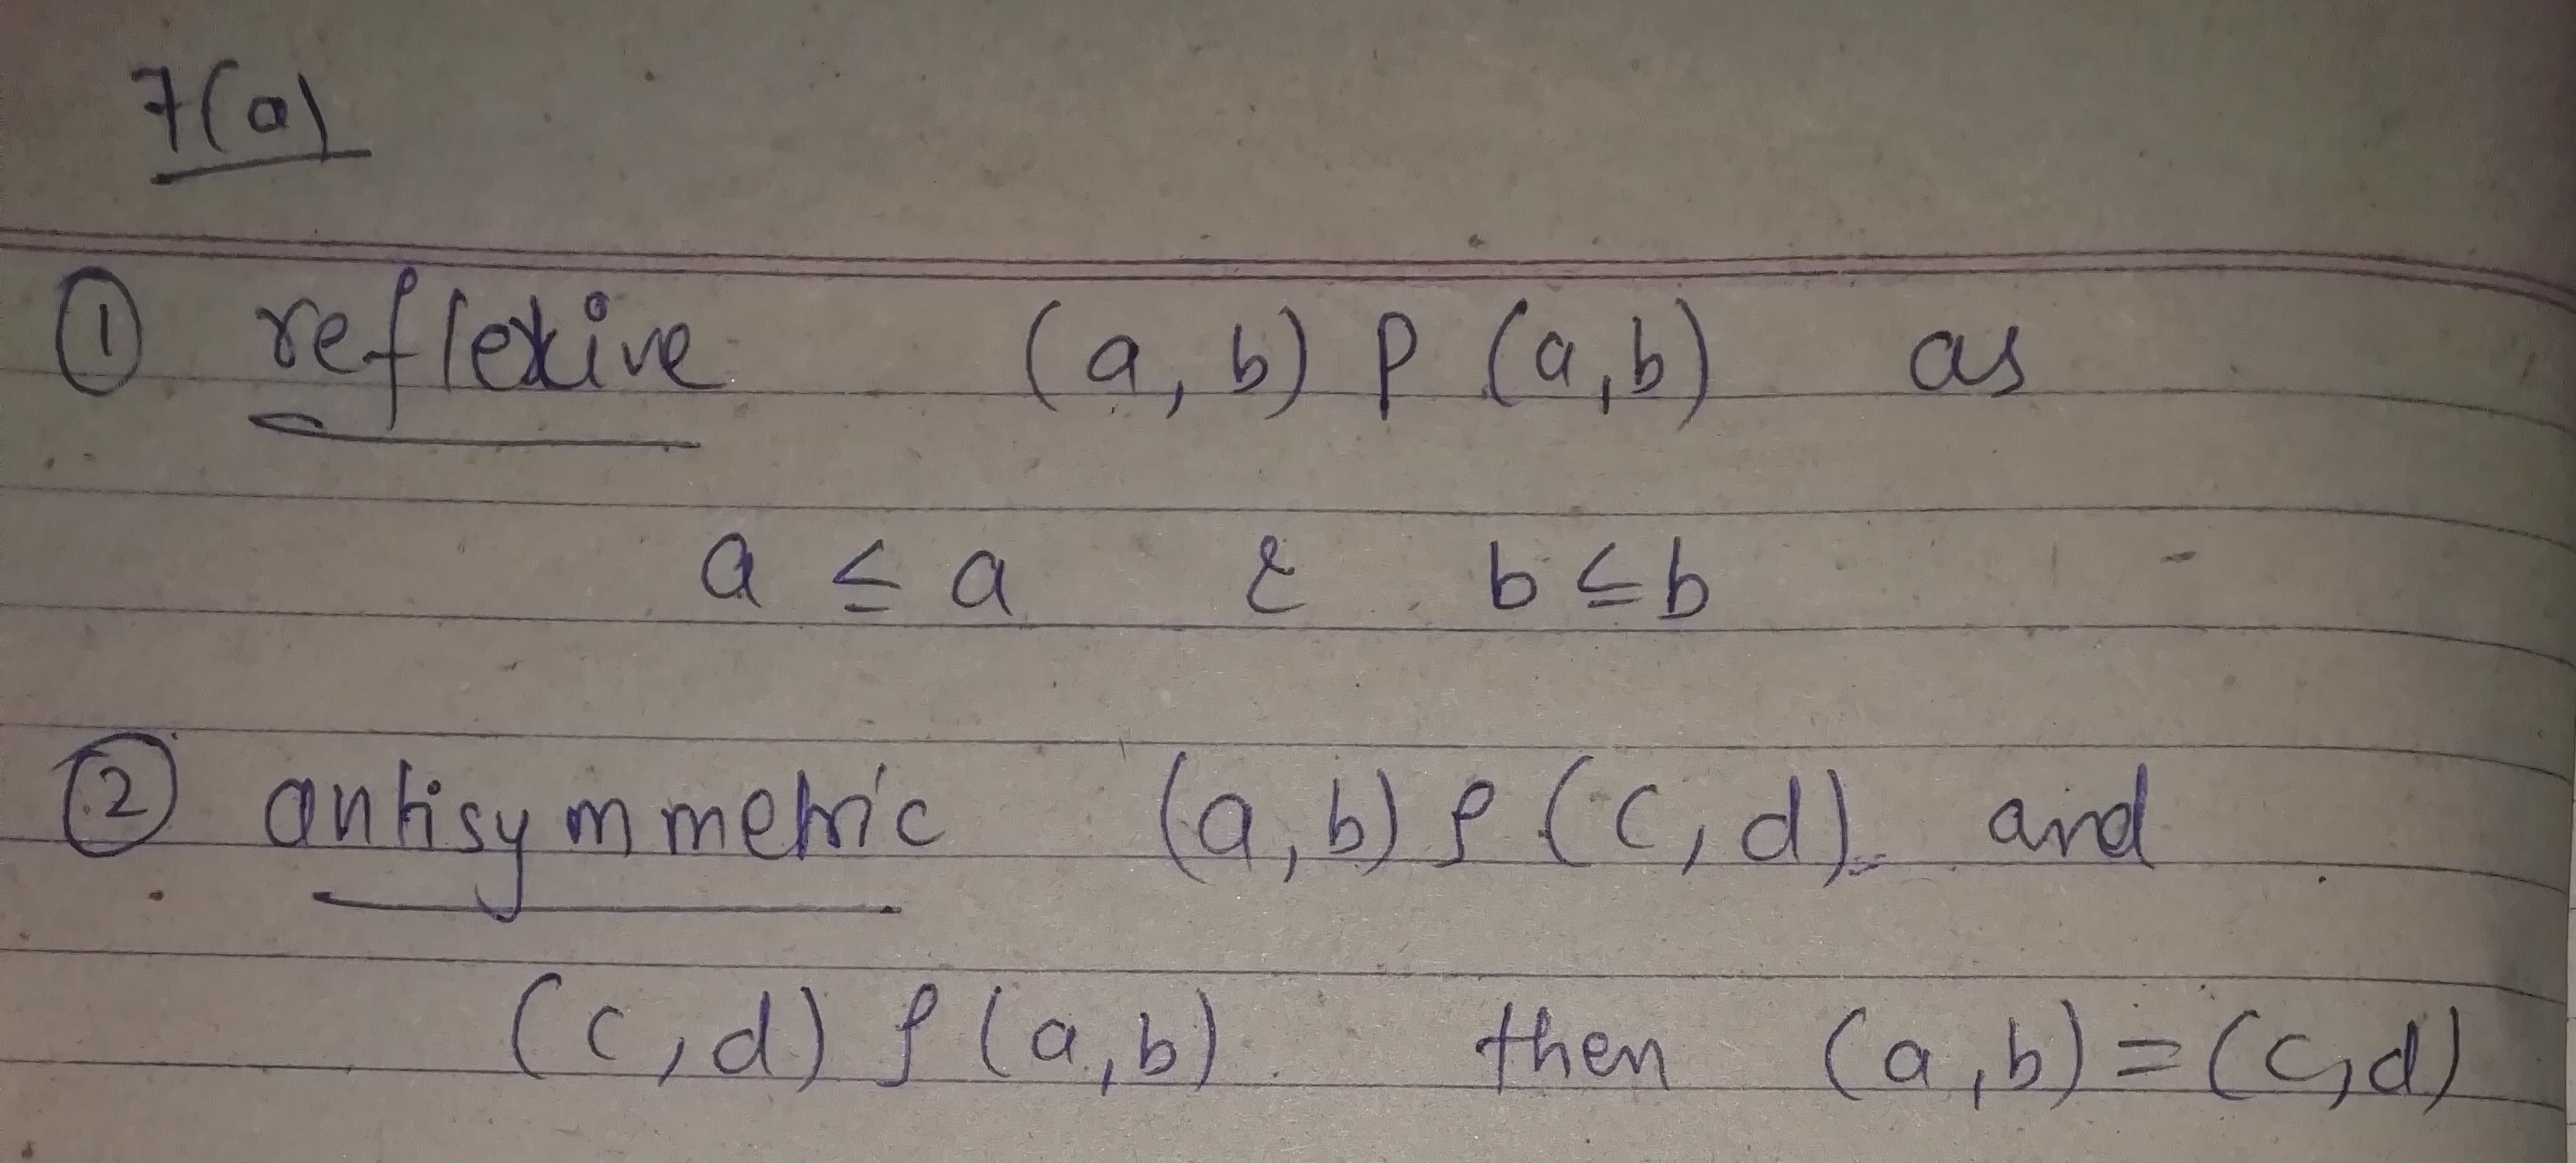 7(a)
① reflexive (a, b) ρ (a,b) as
a ≤ a & b ≤ b
② antisymmetric (a, b) ρ (c, d) and
(c, d) ρ (a, b) then (a, b) = (c, d)